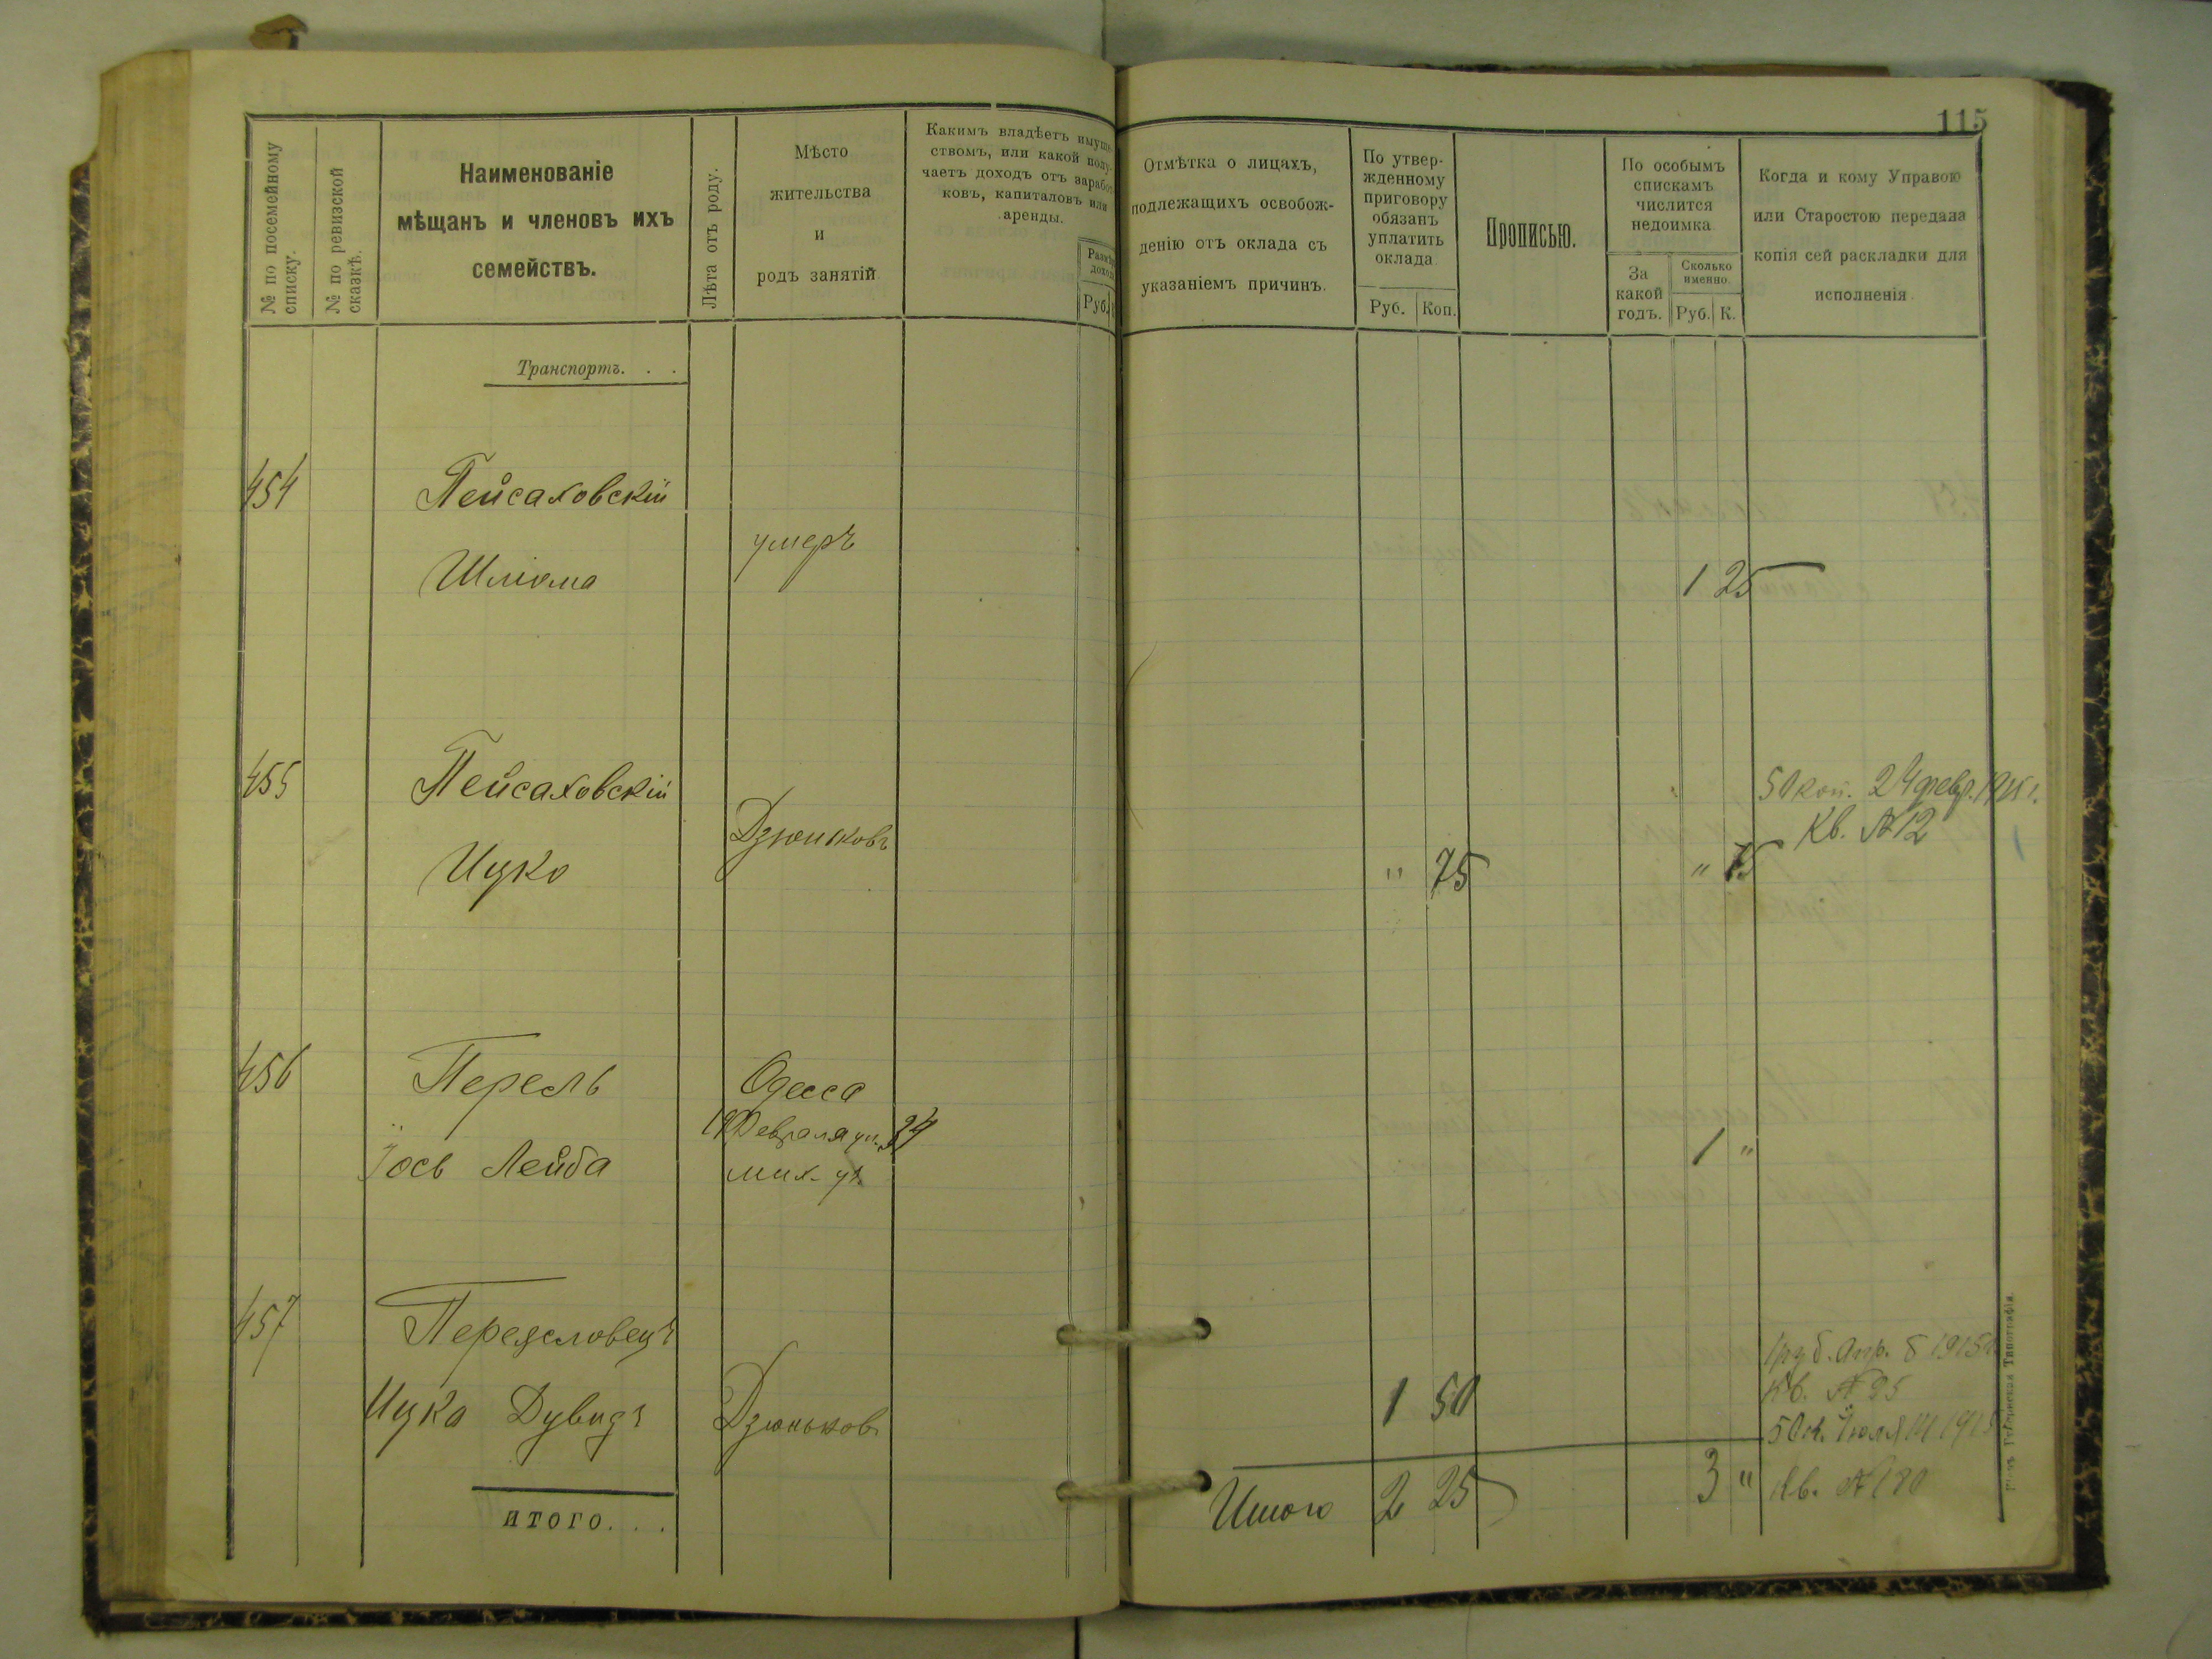 115
№ по посемейному
списку.
№ по ревизской
сказкѣ.
Наименованіе
мѣщанъ и членовъ ихъ
семействъ.
Лѣта отъ роду.
Мѣсто
жительства
и
родъ занятій.
Какимъ владѣетъ имуще-
ствомъ, или какой полу-
чаетъ доходъ отъ заработ-
ковъ, капиталовъ или
аренды.
Размѣръ
дохода
Руб.
Отмѣтка о лицахъ,
подлежащихъ освобож-
денію отъ оклада съ
указаніемъ причинъ.
По утвер-
жденному
приговору
обязанъ
уплатить
оклада
Руб. Коп.
Прописью.
По особымъ
спискамъ
числится
недоимка
За
какой
годъ.
Сколько
именно
Руб. К.
Когда и кому Управою
или Старостою передана
копія сей раскладки для
исполненія.
Транспортъ. . .
454 Пейсаховскій
умеръ
Шліома 1 25
455 Пейсаховскій 50 коп. 24 февр. 1915 г.
Дзюньковъ Кв. № 12
Ицко " 75 " 75
456 Перель Одесса
19 Февраля ул. 34
Іось Лейба мих. ул. 1 "
457 Переяславецъ 1 руб. Апр. 8 1915 г.
Ицка Дувидъ Дзюньковъ 1 50 Кв. № 95
50 к. Іюля 14 1915
Итого 2 25 3 " Кв. № 180
ИТОГО. . .
Типографія.